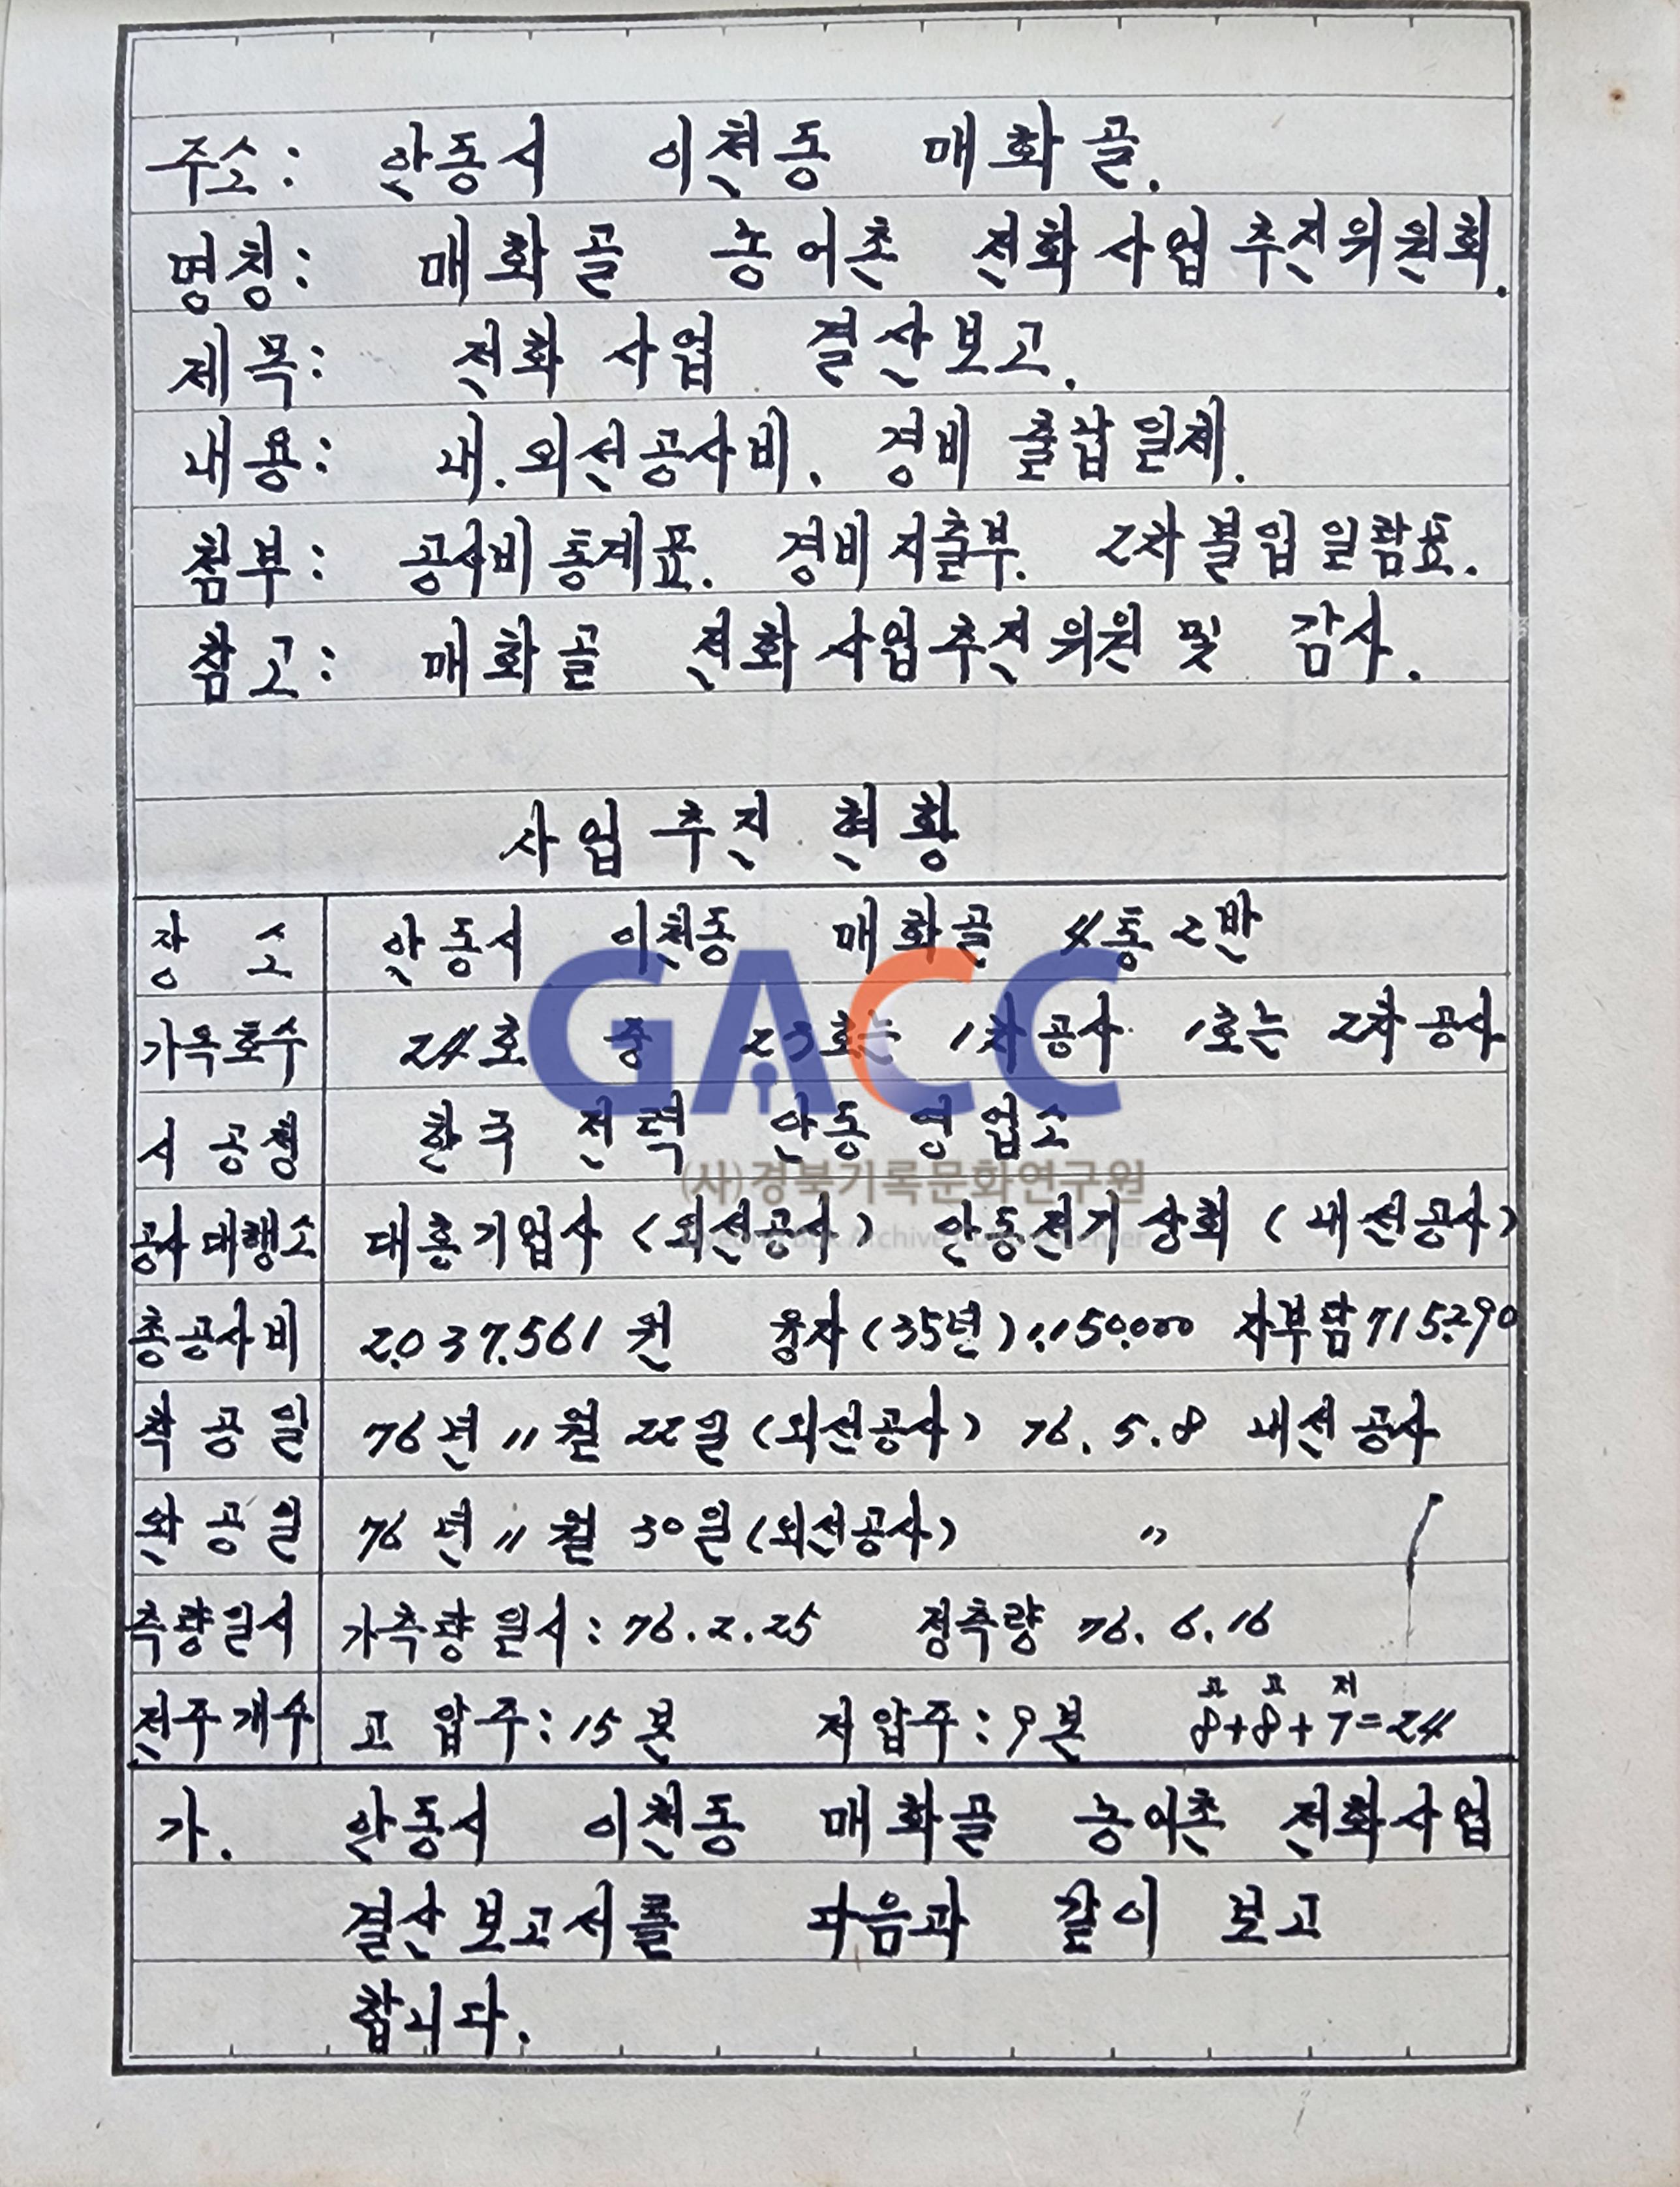 주소: 안동시 이천동 매화골.
명칭: 매화골 농어촌 전화사업추진위원회.
제목: 전화사업 결산보고.
내용: 내.외선공사비. 경비 출납일체.
첨부: 공사비통계표. 경비지출부. 2차불입일람표.
참고: 매화골 전화사업추진위원 및 감사.
사업추진 현황
장소 안동시 이천동 매화골 4통2반
가옥호수 24호 중 23호는 1차공사 1호는 2차공사
시공청 한국전력 안동영업소
공사대행소 대흥기업사 (외선공사) 안동전기상회 (내선공사)
총공사비 2.037.561원 융자(35년) 1.150.000 자부담 715.290
착공일 76년 11월 22일 (외선공사) 76.5.8 내선공사
완공일 76년 11월 30일 (외선공사) 〃
측량일시 가측량일시: 76.2.25 정측량 76.6.16
고 고 저
전주개수 고압주: 15본 저압주: 9본 8+8+7=24
가. 안동시 이천동 매화골 농어촌 전화사업
결산보고서를 다음과 같이 보고
합니다.
GACC
(사)경북기록문화연구원
GyeongBuk Archive Culture Center